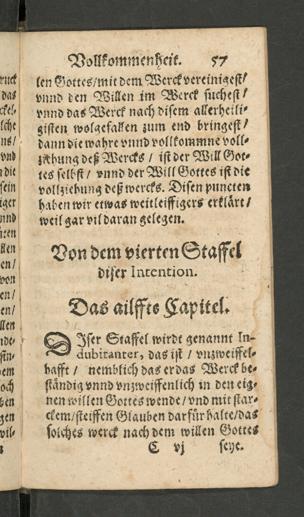 Vollkommenheit. 57
len Gottes/mit dem Werck vereinigest/
vnnd den Willen im Werck suchest/
vnnd das Werck nach disem allerheili-
gisten wolgefallen zum end bringest/
dann die wahre vnnd vollkommne voll-
ziehung deß Wercks / ist der Will Got-
tes selbst / vnnd der Will Gottes ist die
vollziehung deß wercks. Disen puncten
haben wir etwas weitleiffigers erklärt/
weil gar vil daran gelegen.
Von dem vierten Staffel
diser Intention.
Das ailffte Capitel.
DIser Staffel wirdt genannt In-
dubitanter, das ist / vnzweiffel-
hafft / nemblich das er das Werck be-
ständig vnnd vnzweiffenlich in den eig-
nen willen Gottes wende / vnd mit star-
ckem/steiffen Glauben darfür halte/das
solches werck nach dem willen Gottes
C vj seye.